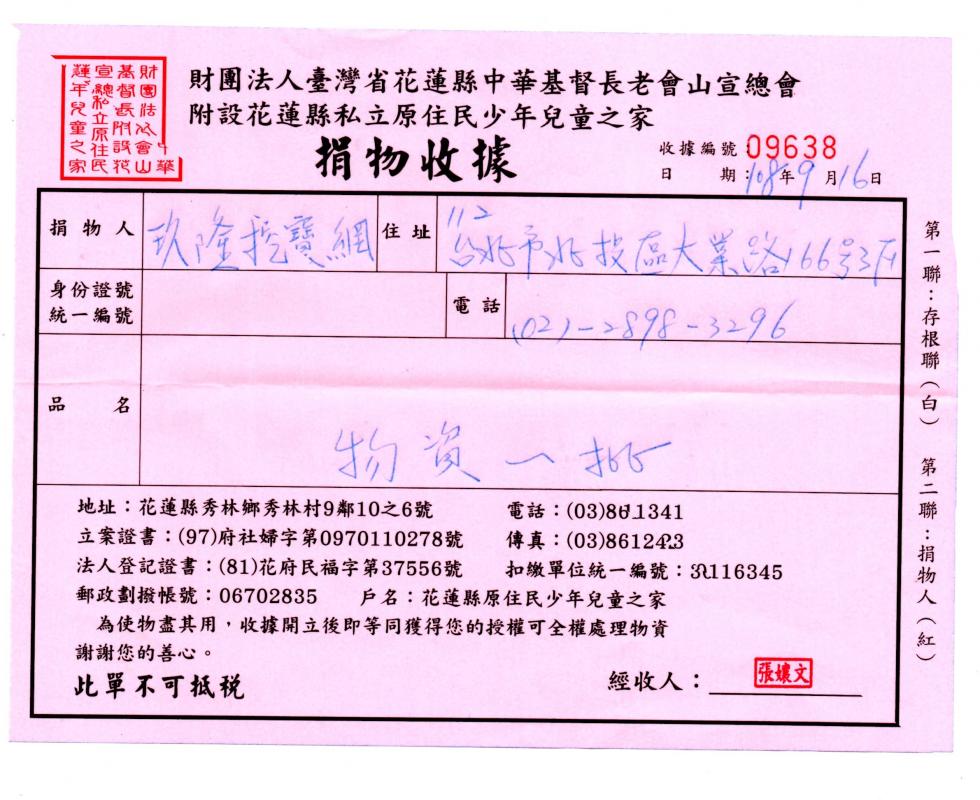 財團法人臺灣省花蓮縣中華基督長老會山宣總會
附設花蓮縣私立原住民少年兒童之家
捐物收據
收據編號：09638
日 期：108年9月16日
捐物人 玖隆挖寶網 住址 112
台北市北投區大業路166號3F
身份證號
統一編號
電話 (02)-2898-3296
品名 物資一批
地址：花蓮縣秀林鄉秀林村9鄰10之6號 電話：(03)8611341
立案證書：(97)府社婦字第0970110278號 傳真：(03)8612423
法人登記證書：(81)花府民福字第37556號 扣繳單位統一編號：
郵政劃撥帳號：06702835 戶名：花蓮縣原住民少年兒童之家
為使物盡其用，收據開立後即等同獲得您的授權可全權處理物資
謝謝您的善心。
此單不可抵稅
經收人：
第一聯：存根聯（白） 第二聯：捐物人（紅）